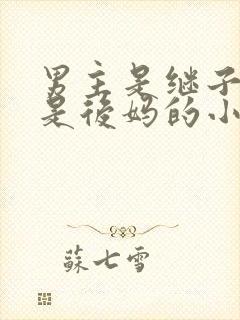 男主是继子
是後妈的小
蘇七雪